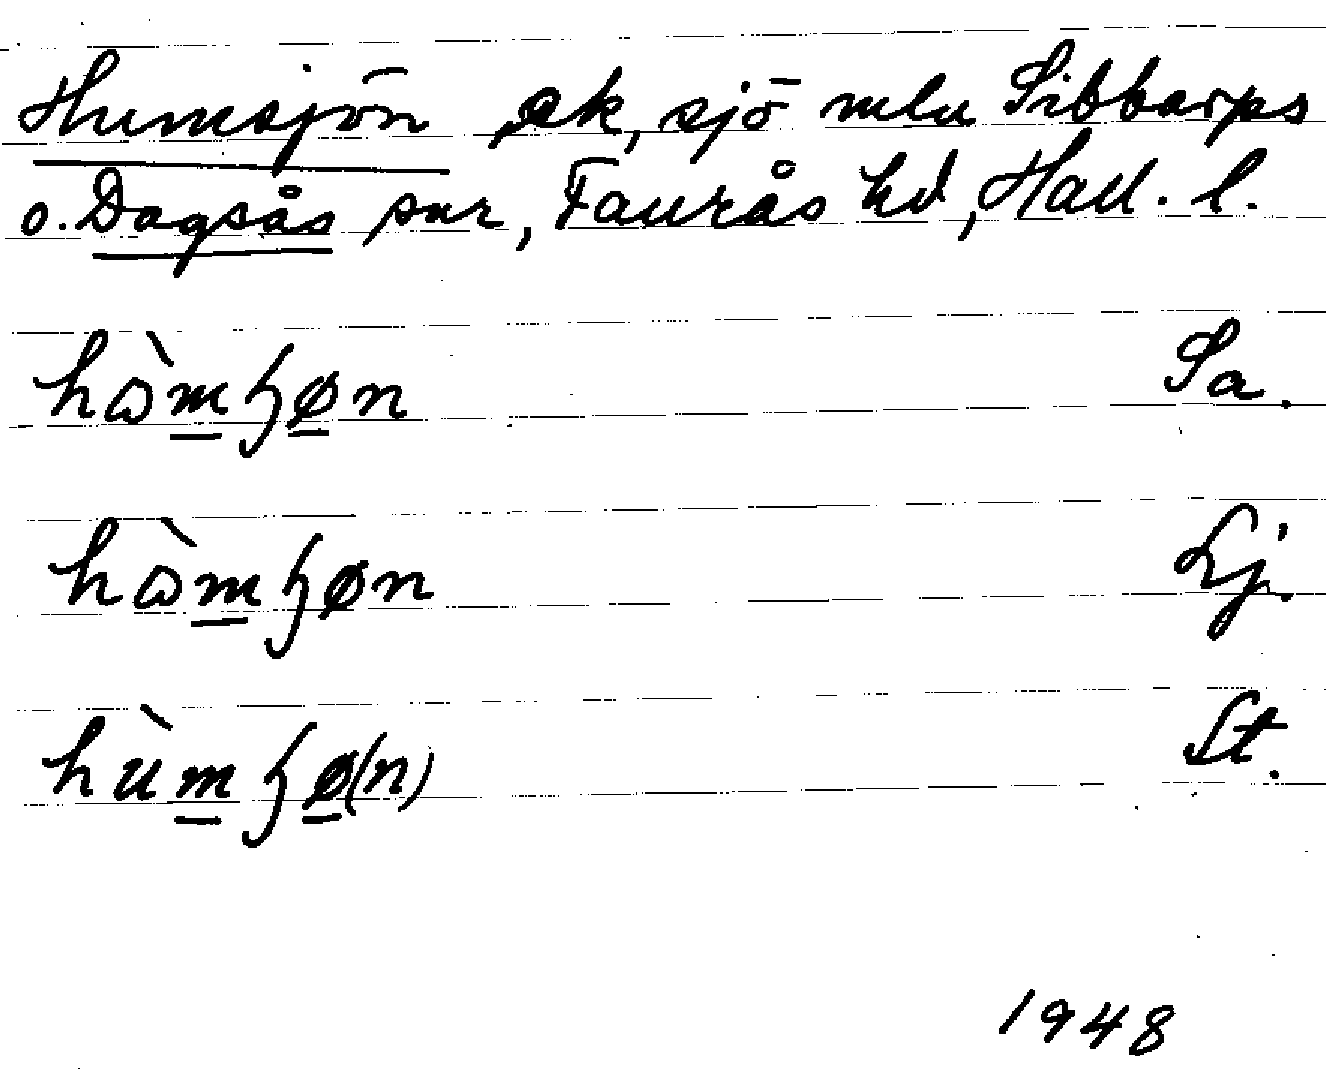 Humsjön, ek, sjö mln Sibbarps
o. Dagsås snr, Faurås hd, Hall. l.
hɷ̀mʒøn Sa.
hɷ̀mʒøn Lj.
hùmʒø(n) St.
1948